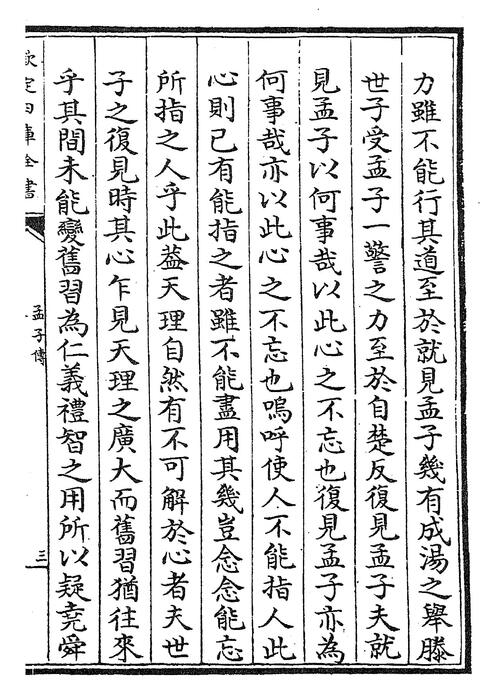 力雖不能行其道至於就見孟子幾有成湯之舉滕
世子受孟子一警之力至於自楚反復見孟子夫就
見孟子以何事哉以此心之不忘也復見孟子亦為
何事哉亦以此心之不忘也嗚呼使人不能指人此
心則已有能指之者雖不能盡用其幾豈念念能忘
所指之人乎此葢天理自然有不可解於心者夫世
子之復見時其心乍見天理之廣大而舊習猶往來
乎其間未能變舊習為仁義禮智之用所以疑堯舜
欽定四庫全書
孟子傳
三